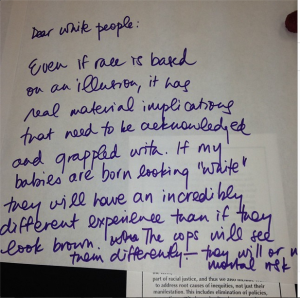 Dear white people:
Even if race is based
on an illusion, it has
real material implications
that need to be acknowledged
and grappled with. If my
babies are born looking "white"
they will have an incredibly
different experience than if they
look brown. The cops will see
them differently — they will or w
mortal risk
part of racial justice, and thus we
to address root causes of inequities, not just their
manifestation. This includes elimination of policies,